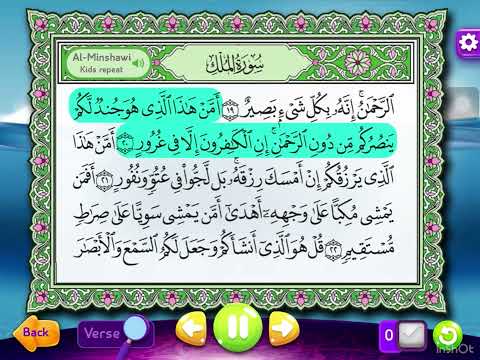 Al-Minshawi
Kids repeat
سُورَةُ المُلْكِ
ٱلرَّحْمَٰنُ ۚ إِنَّهُۥ بِكُلِّ شَىْءٍۭ بَصِيرٌ ١٩ أَمَّنْ هَٰذَا ٱلَّذِى هُوَ جُندٌ لَّكُمْ
يَنصُرُكُم مِّن دُونِ ٱلرَّحْمَٰنِ ۚ إِنِ ٱلْكَٰفِرُونَ إِلَّا فِى غُرُورٍ ٢٠
أَمَّنْ هَٰذَا
ٱلَّذِى يَرْزُقُكُمْ إِنْ أَمْسَكَ رِزْقَهُۥ ۚ بَل لَّجُّوا۟ فِى عُتُوٍّ وَنُفُورٍ ٢١ أَفَمَن
يَمْشِى مُكِبًّا عَلَىٰ وَجْهِهِۦٓ أَهْدَىٰٓ أَمَّن يَمْشِى سَوِيًّا عَلَىٰ صِرَٰطٍ
مُّسْتَقِيمٍ ٢٢ قُلْ هُوَ ٱلَّذِىٓ أَنشَأَكُمْ وَجَعَلَ لَكُمُ ٱلسَّمْعَ وَٱلْأَبْصَٰرَ
Back
Verse
0
InShOt